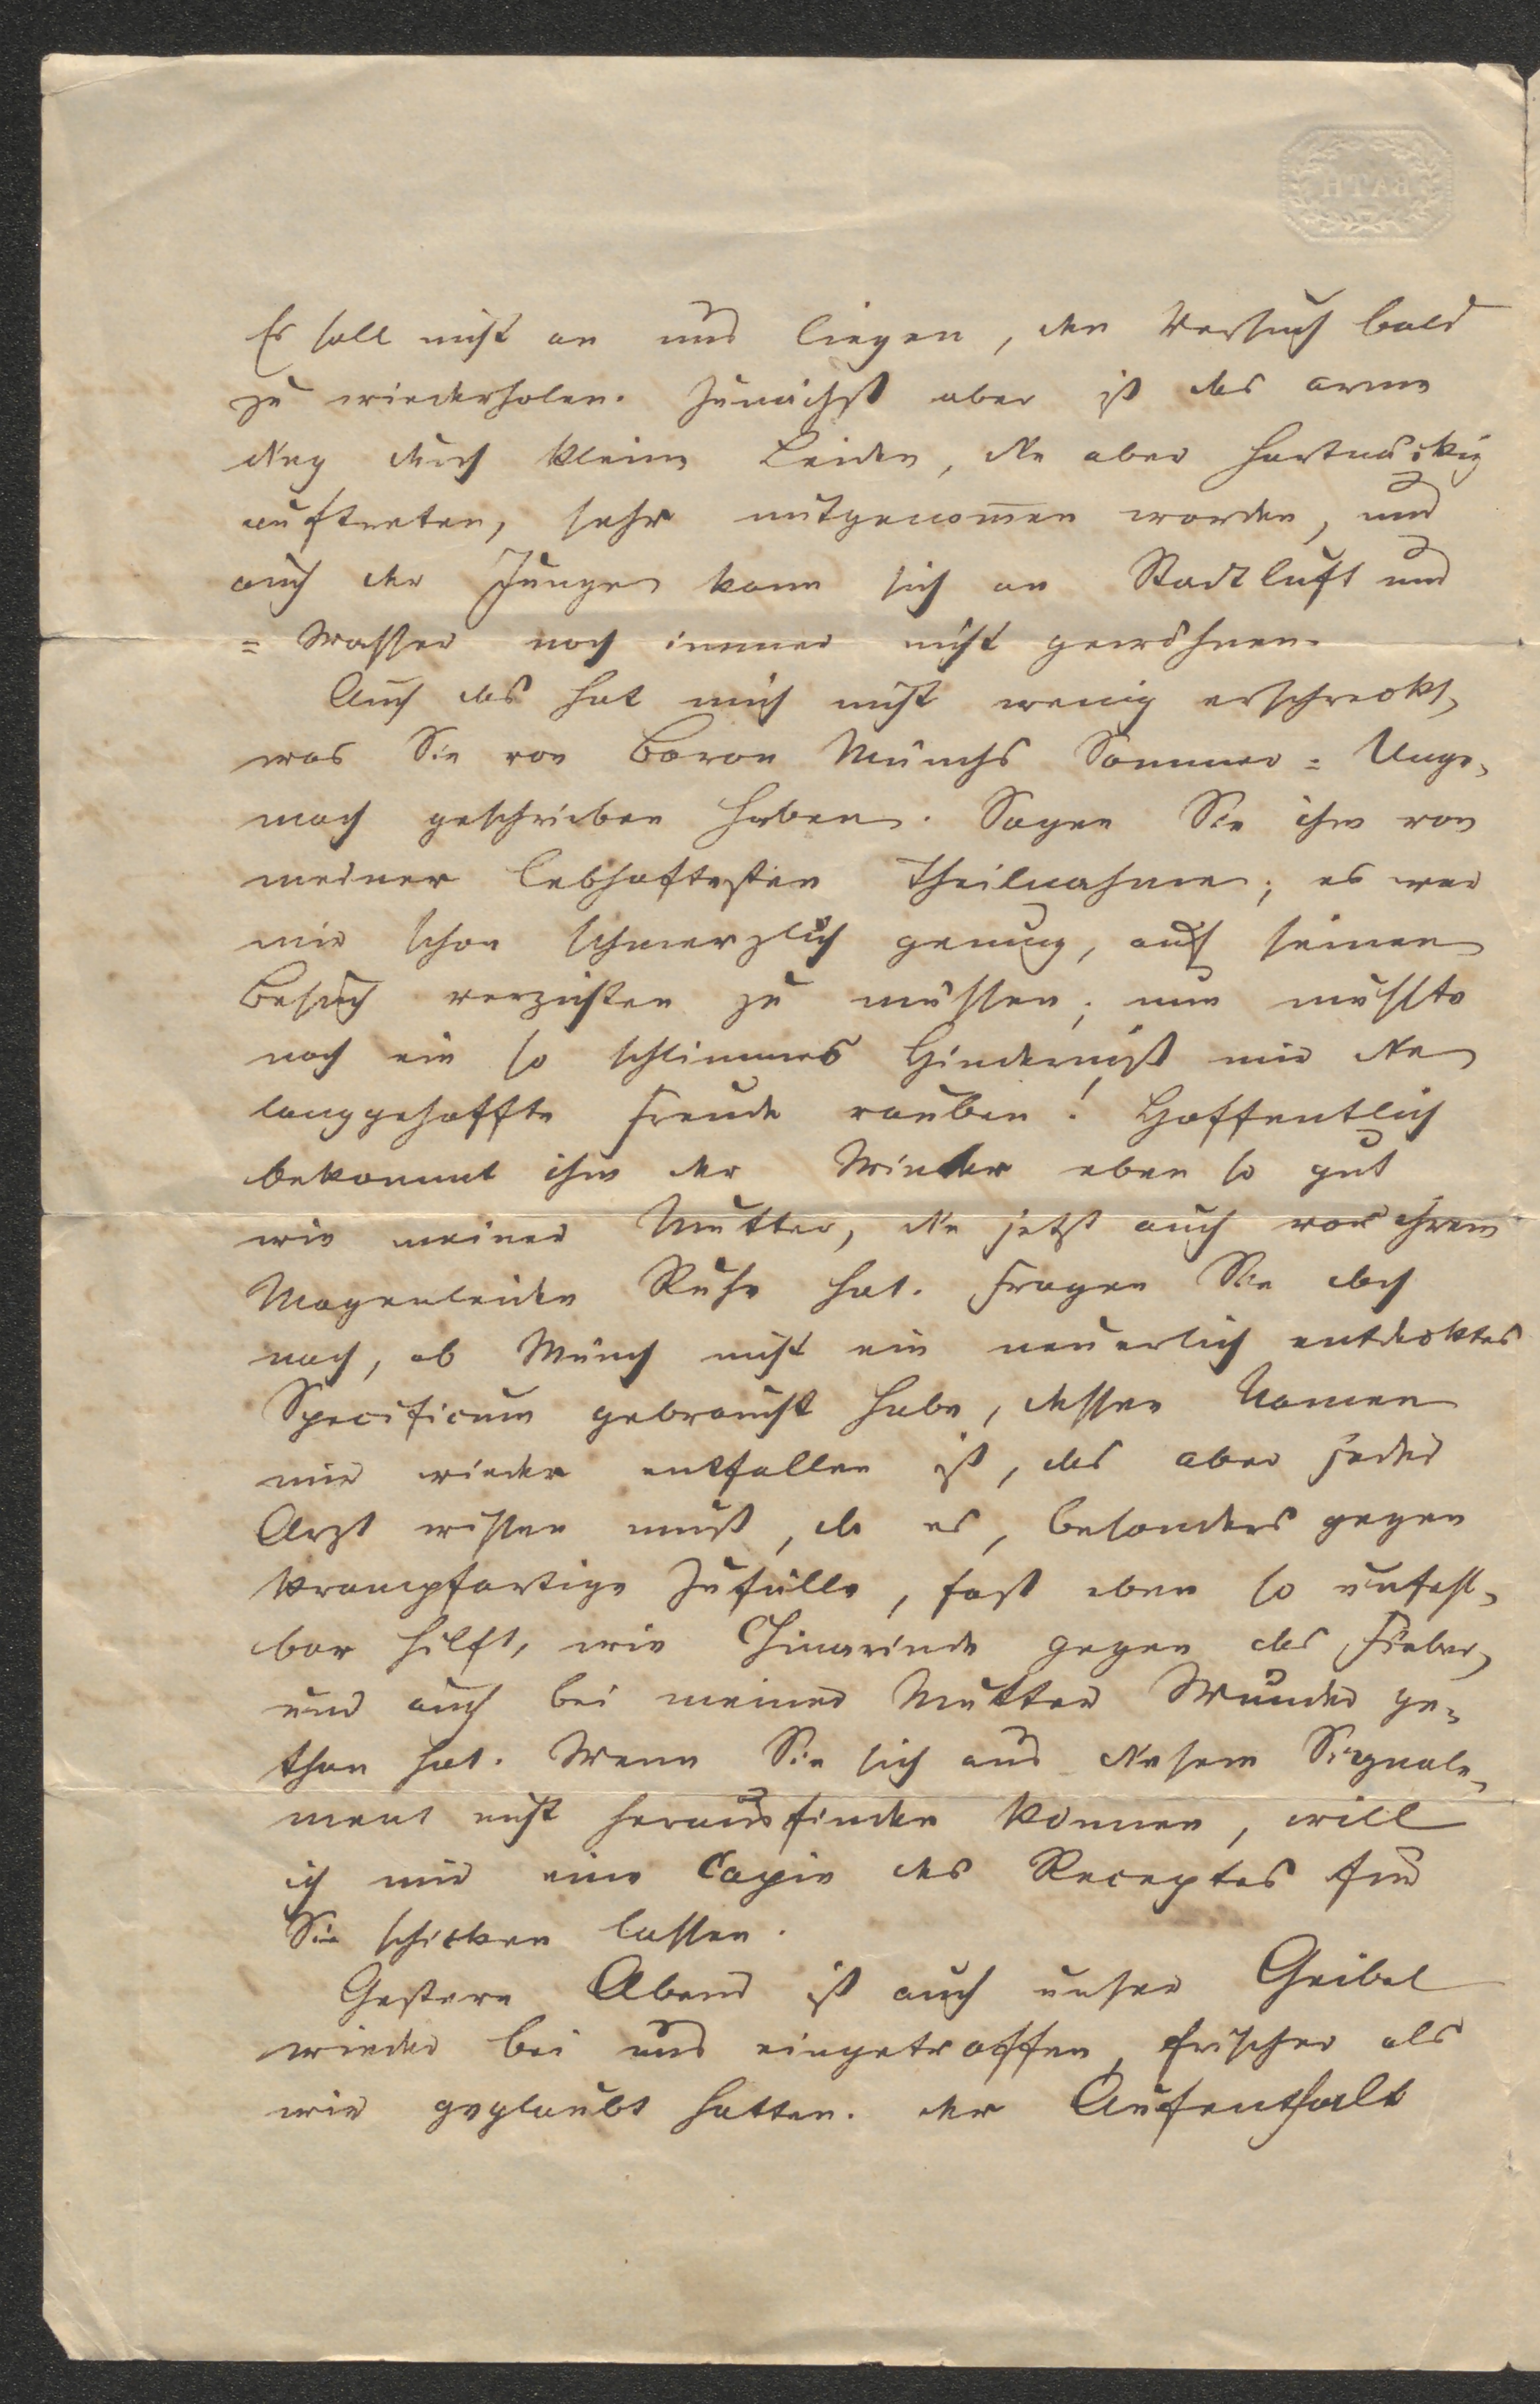 BATH
Es soll nicht an uns liegen, den Versuch bald
zu wiederholen. Zunächst aber ist das arme
Ding durch kleine Leiden, die aber hartnäckig
auftreten, sehr mitgenom̅en worden, und
auch der Junge kann sich an Stadtluft und
= Wasser noch immer nicht gewöhnen.
Auch das hat mich nicht wenig erschreckt,
was Sie von Baron Münchs Sommer = Unge-
mach geschrieben haben. Sagen Sie ihm von
meiner lebhaftesten Theilnahme; es war
mir schon schmerzlich genug, auf seinen
Besuch verzichten zu müssen; nun mußte
noch ein so schlimmes Hinderniß mir die
langgehoffte Freude rauben! Hoffentlich
bekommt ihm der Winter eben so gut
wie meiner Mutter, die jetzt auch vor ihrem
Magenleiden Ruhe hat. Fragen Sie doch
nach, ob Münch nicht ein neuerlich entdecktes
Specificum gebraucht habe, dessen Namen
mir wieder entfallen ist, das aber jeder
Arzt wissen muß, da es, besonders gegen
krampfartige Zufälle, fast eben so unfehl-
bar hilft, wie Chinarinde gegen das Fieber,
und auch bei meiner Mutter Wunder ge-
than hat. Wenn Sie sich aus diesem Signale-
ment nicht herausfinden können, will
ich mir eine Copie des Receptes für
Sie schicken lassen.
Gestern Abend ist auch unser Geibel
wieder bei uns eingetroffen, frischer als
wir geglaubt hatten. Der Aufenthalt